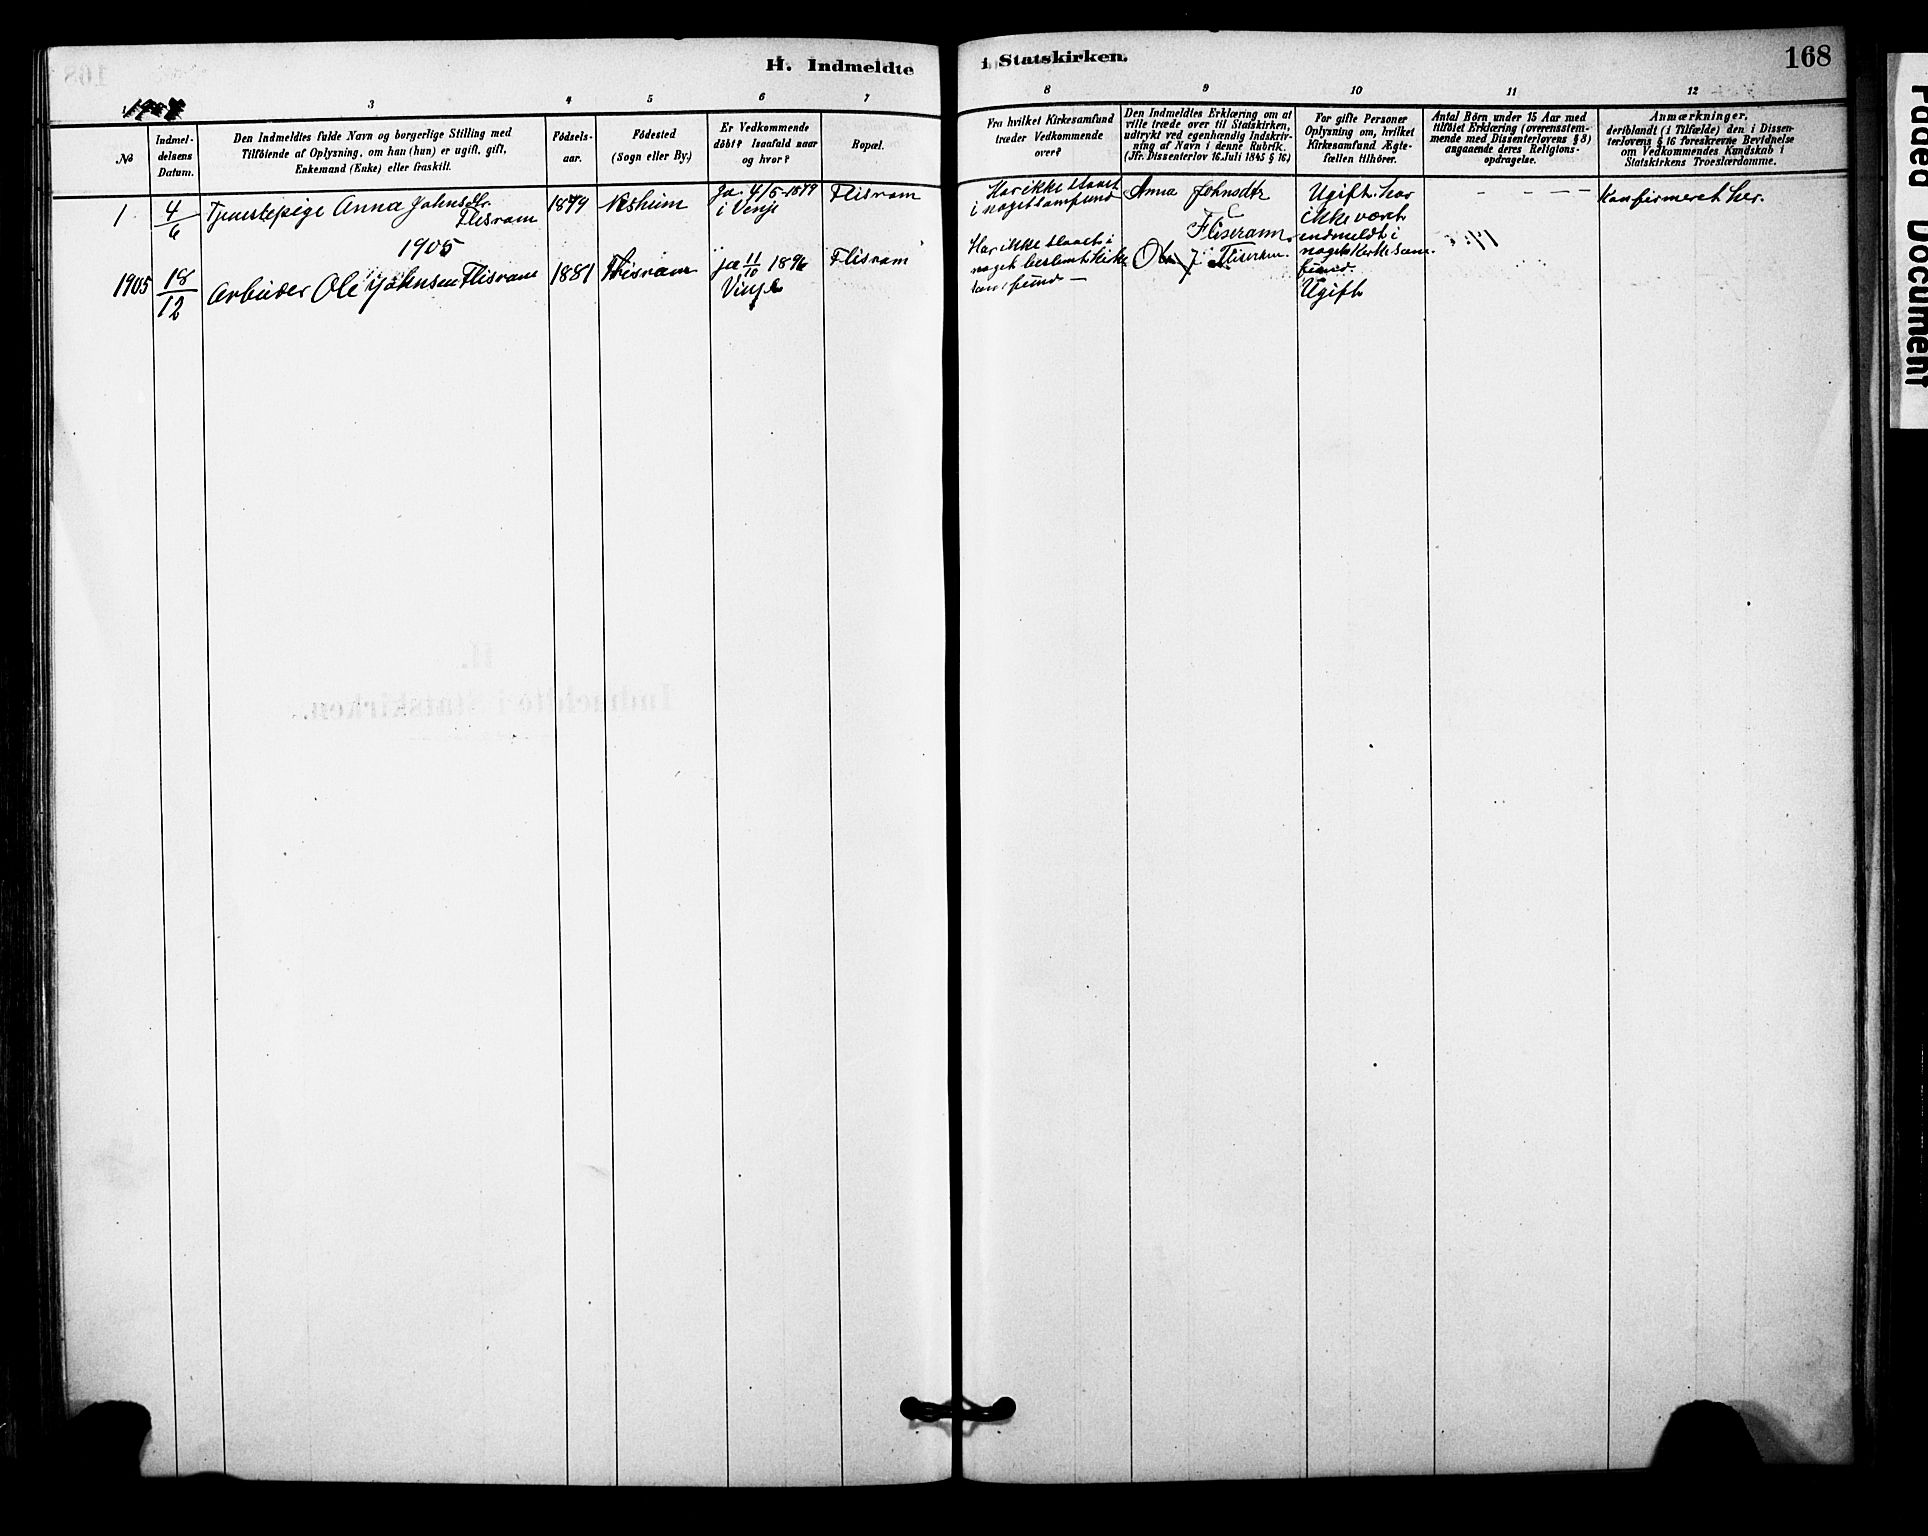 H. Indmeldte
i Statskirken.
168
3
4
5
6
7
8
9
10
11
12
No
Indmel-
delsens
Datum.
Den Indmeldtes fulde Navn og borgerlige Stilling med
Tilföiende af Oplysning, om han (hun) er ugift, gift,
Enkemand (Enke) eller fraskilt.
Födsels-
aar.
Födested
(Sogn eller By.)
Er Vedkommende
döbt? Isaafald naar
og hvor?
Bopæl.
Fra hvilket Kirkesamfund
træder Vedkommende
over?
Den Indmeldtes Erklæring om at
ville træde over til Statskirken,
udtrykt ved egenhændig Indskriv-
ning af Navn i denne Rubrik.
(Jfr. Dissenterlov 16. Juli 1845 § 16)
For gifte Personer
Oplysning om, hvilket
Kirkesamfund Ægte-
fællen tilhörer.
Antal Börn under 15 Aar med
tilföiet Erklæring (overensstem-
mende med Dissenterlovens § 8)
angaaende deres Religions-
opdragelse.
Anmærkninger,
deriblandt (i Tilfælde) den i Dissen-
terlovens § 16 foreskrevne Bevidnelse
om Vedkommendes Kundskab i
Statskirkens Troeslærdomme.
1
4/6
Tjenestepige Anna Johnsdtr.
Flisram
1879
Ja 4/5 1879
i Vinje
Flisram
Har ikke staaet
i noget samfund
Anna Johnsdtr
Fliseram.
Ugift. har
ikke været
indmeldt i
noget Kirkesam-
fund.
- - - -
Konfirmeret her.
1905
1905
18/12
Arbeider Ole Johnsen Flisram
1881
Flisram
ja 11/10 1896
Vinje
Flisram
Har ikke staaet i
noget bestemt Kirke
samfund -
Ole J. Fliseram
Ugift
Faded Document